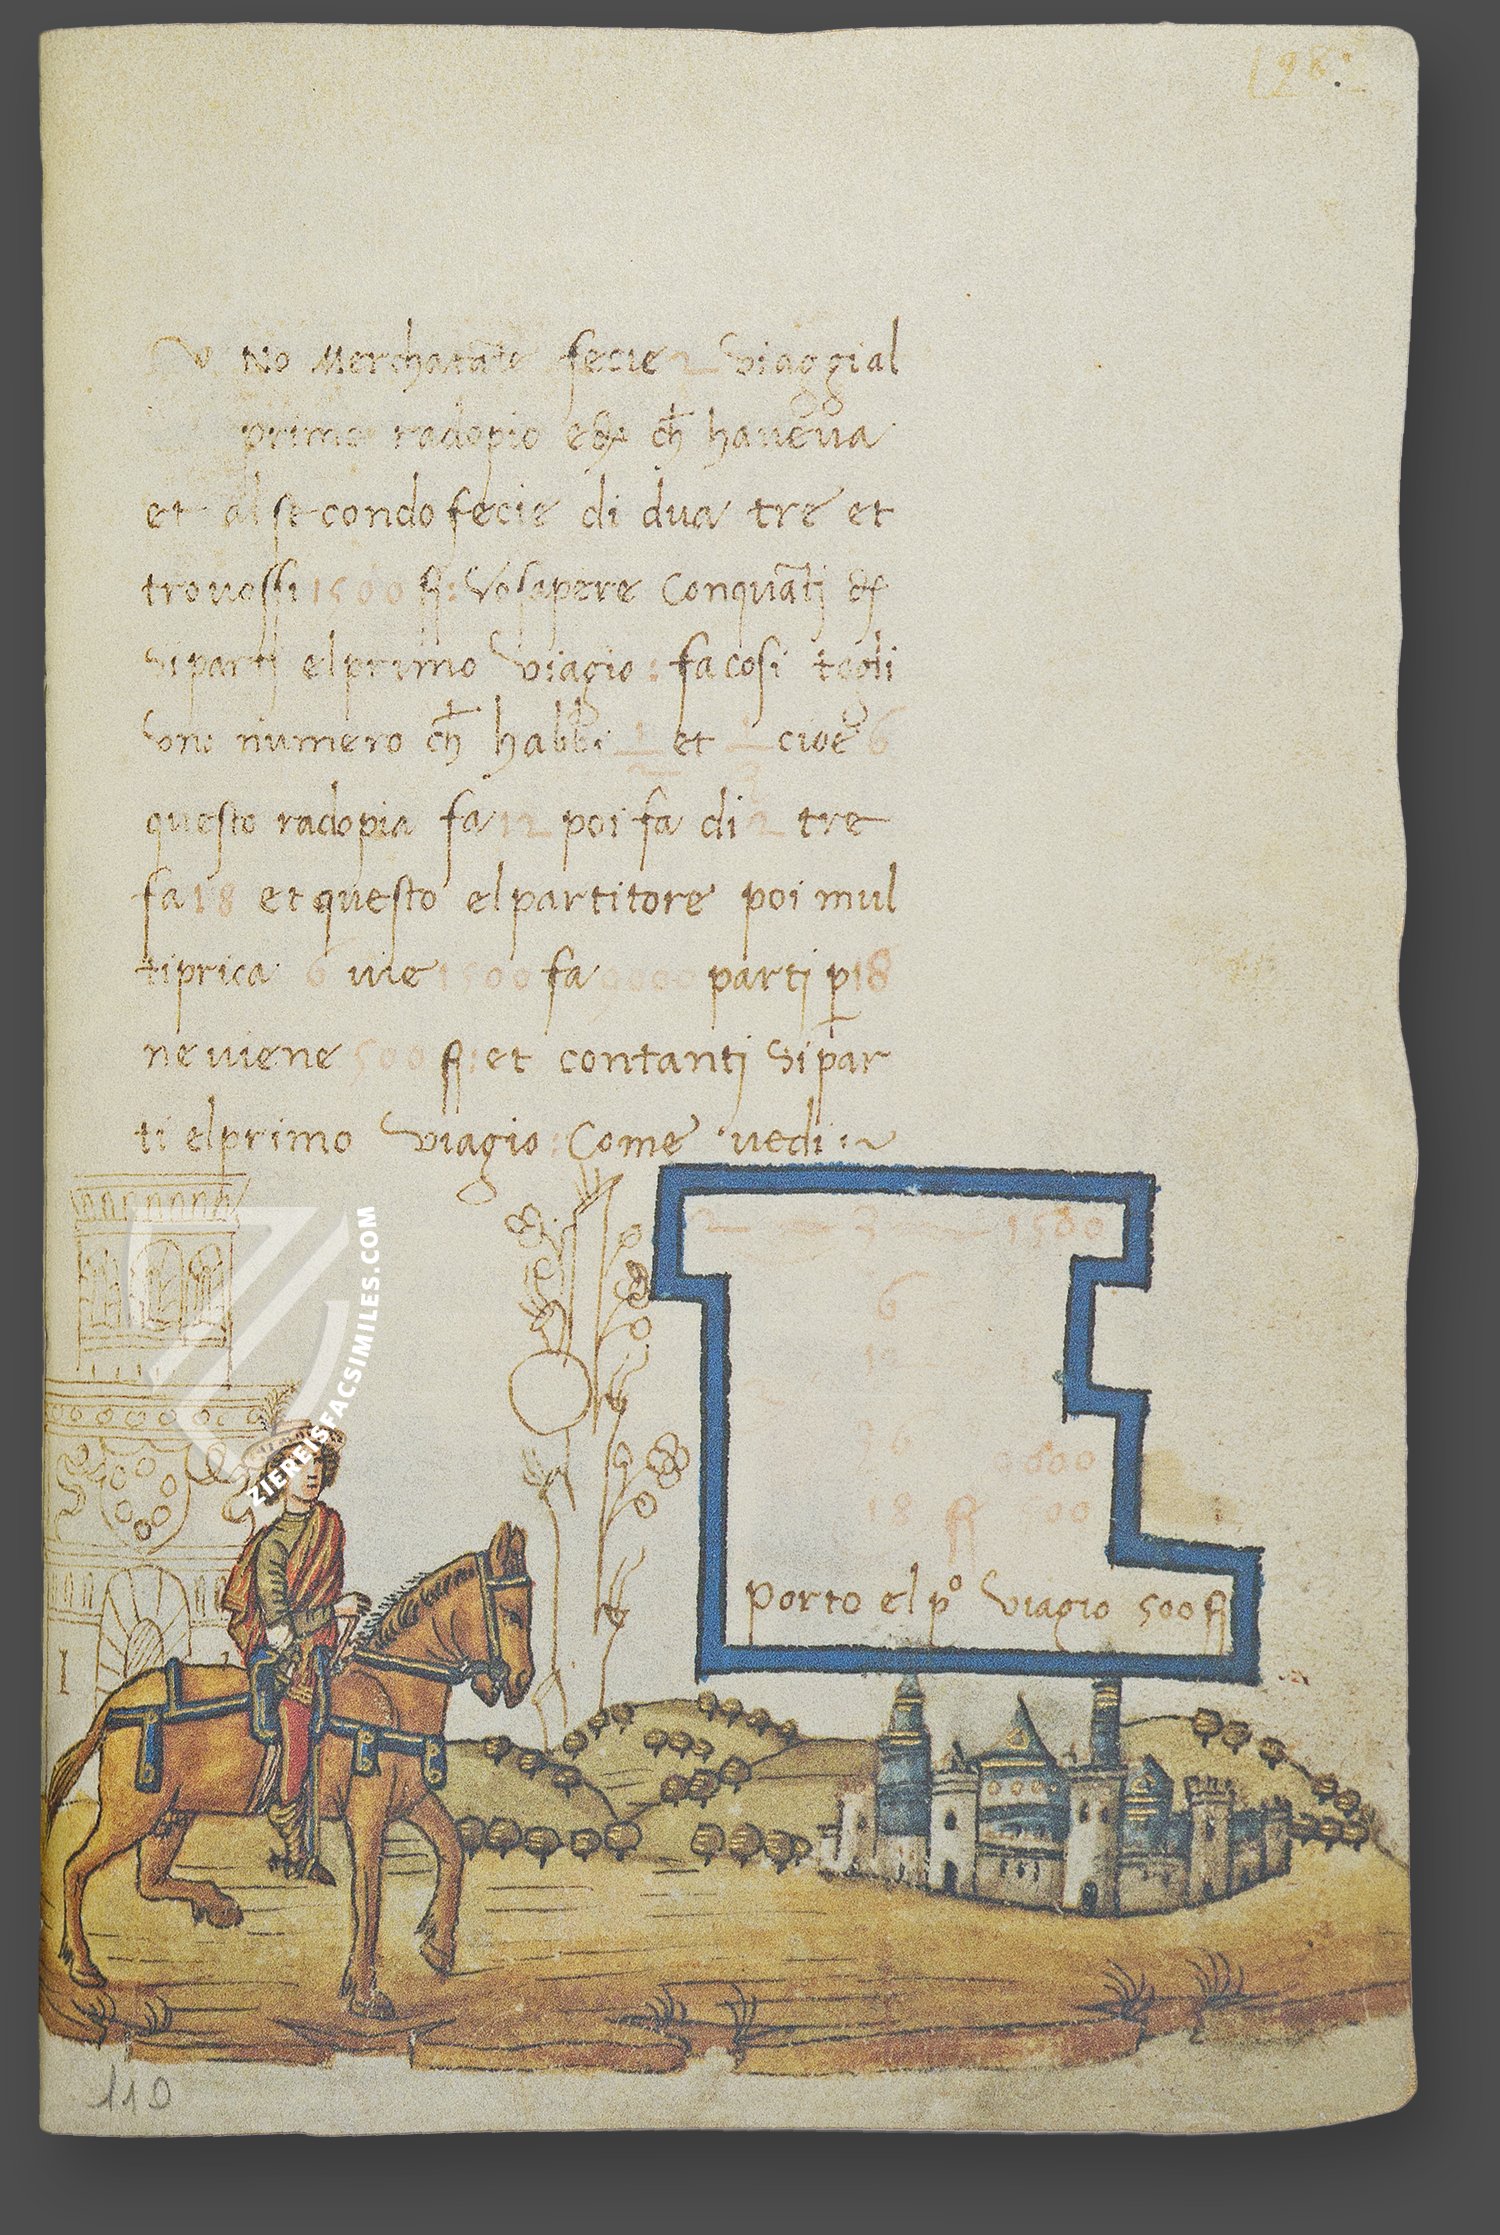 UNO Merchatāte fecie 2 viaggi al
primo radopio e δf ch haveva
et al secondo fecie di dua tre et
trovossi 1500 f: Vo sapere Con quāti δf
si parti el primo viagio: fa cosi togli
uno numero ch habbi 1/2 et 1/3 cioe 6
questo radopia fa 12 poi fa di 2 tre
fa 18 et questo el partitore poi mul
tiprica 6 vie 1500 fa 9000 parti p 18
ne viene 500 f: et contanti si par
ti el primo viagio: Come vedi :~
2 3 1500
6
12
36 9000
18 f 500
Porto el pº viagio 500 f
110
ZIEREISFACSIMILES.COM